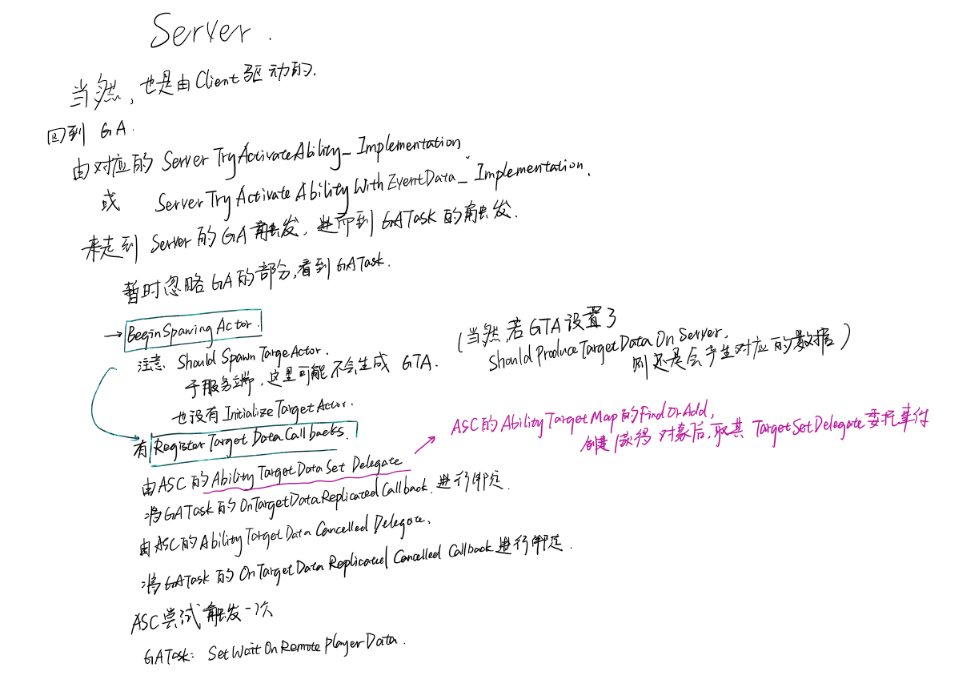 Server.
当然，也是由Client驱动的.
回到 GA.
由对应的 ServerTryActivateAbility_Implementation.
或 ServerTryActivateAbilityWithEventData_Implementation.
来走到 Server的GA触发，进而到GATask的触发.
暂时忽略GA的部分,看到GATask.
→ BeginSpawingActor.
注意. Should Spawn TargeActor.
于服务端，这里可能不会生成 GTA.
(当然若GTA设置了
ShouldProduceTargetDataOnServer,
则还是会产生对应的数据)
也没有InitializeTargetActor.
有 Register Target Data Callbacks.
由ASC的Ability Target Data Set Delegate
ASC的AbilityTargetMap的FindOrAdd,
创建/获得 对象后,取其 TargetSetDelegate委托事件
将GATask的OnTargetDataReplicatedCallback 进行绑定.
由ASC的Ability Target Data Cancelled Delegate,
将GATask的OnTargetData Replicated Cancelled Callback进行绑定.
ASC尝试触发一次
GATask: SetWaitOnRemotePlayerData.